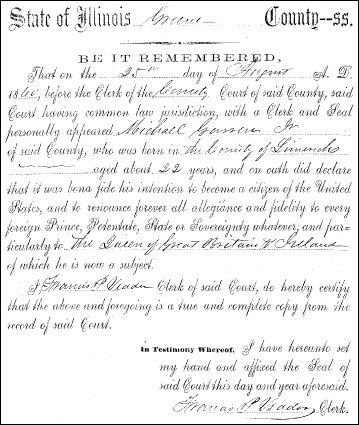 State of Illinois Greene County--ss.
BE IT REMEMBERED,
That on the 25th day of August A. D.
1860, before the Clerk of the County Court of said County, said
Court having common law jurisdiction, with a Clerk and Seal
personally appeared Michael Jr
of said County, who was born in the County of Limerick
aged about 22 years, and on oath did declare
that it was bona fide his intention to become a citizen of the United
States, and to renounce forever all allegiance and fidelity to every
foreign Prince, Potentate, State or Sovereignty whatever, and par-
ticularly to the Queen of Great Britain & Ireland
of which he is now a subject.
I Francis P. Clerk of said Court, do hereby certify
that the above and foregoing is a true and complete copy from the
record of said Court.
In Testimony Whereof, I have hereunto set
my hand and affixed the Seal of
said Court this day and year aforesaid.
Francis P. Clerk.